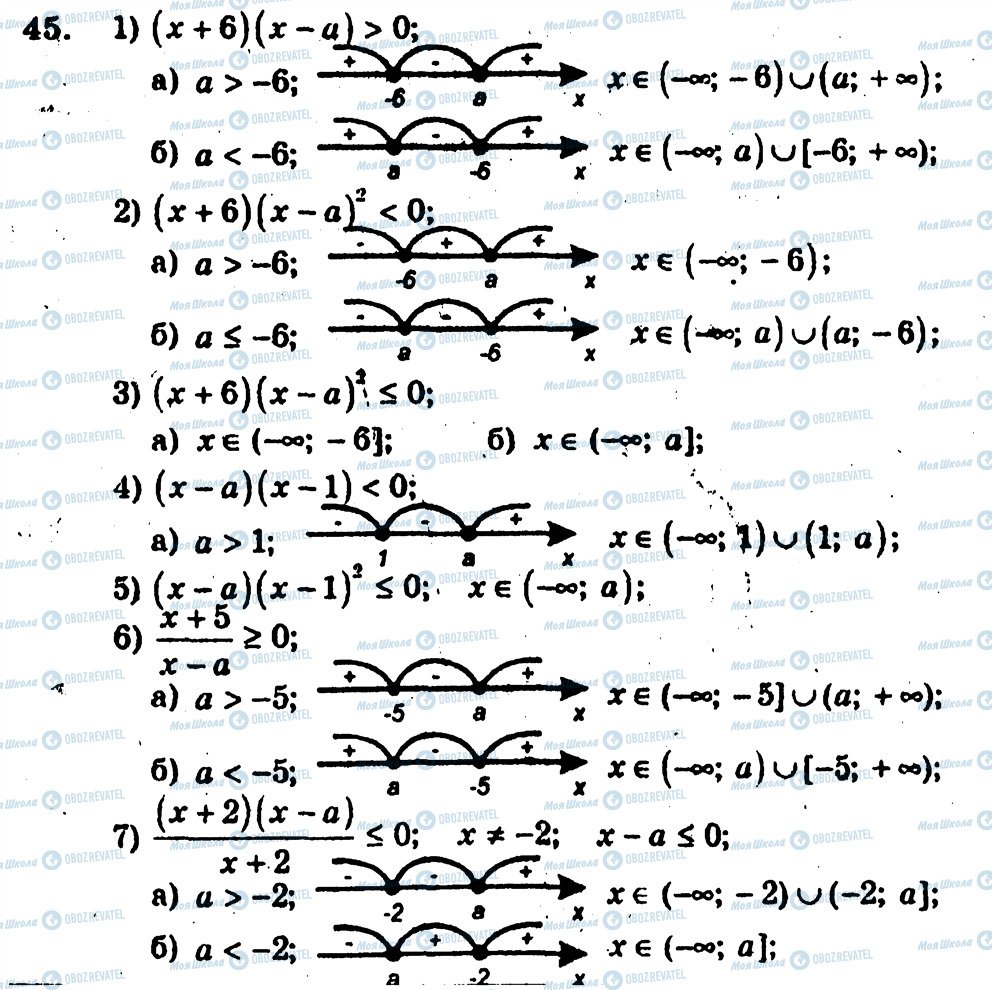 45. 1) (x + 6)(x − a) > 0;
а) a > −6; + - + -6 a x x ∈ (−∞; − 6) ∪ (a; + ∞);
б) a < −6; + - + a -6 x x ∈ (−∞; a) ∪ [−6; + ∞);
2) (x + 6)(x − a)² < 0;
а) a > −6; - + + -6 a x x ∈ (−∞; − 6);
б) a ≤ −6; - - + a -6 x x ∈ (−∞; a) ∪ (a; − 6);
3) (x + 6)(x − a)² ≤ 0;
а) x ∈ (−∞; − 6]; б) x ∈ (−∞; a];
4) (x − a)(x − 1) < 0;
а) a > 1; - - + 1 a x x ∈ (−∞; 1) ∪ (1; a);
5) (x − a)(x − 1)² ≤ 0; x ∈ (−∞; a);
6) (x + 5)/(x − a) ≥ 0;
а) a > −5; + - + -5 a x x ∈ (−∞; − 5] ∪ (a; + ∞);
б) a < −5; + - + a -5 x x ∈ (−∞; a) ∪ [−5; + ∞);
7) (x + 2)(x − a)/(x + 2) ≤ 0; x ≠ −2; x − a ≤ 0;
а) a > −2; - - + -2 a x x ∈ (−∞; − 2) ∪ (−2; a];
б) a < −2; - + + a -2 x x ∈ (−∞; a];
Моя Школа OBOZREVATEL